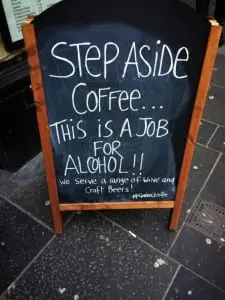 STEP ASIDE
COFFEE...
THIS IS A JOB
FOR
ALCOHOL!!
We Serve a range of Wine and
Craft Beers!